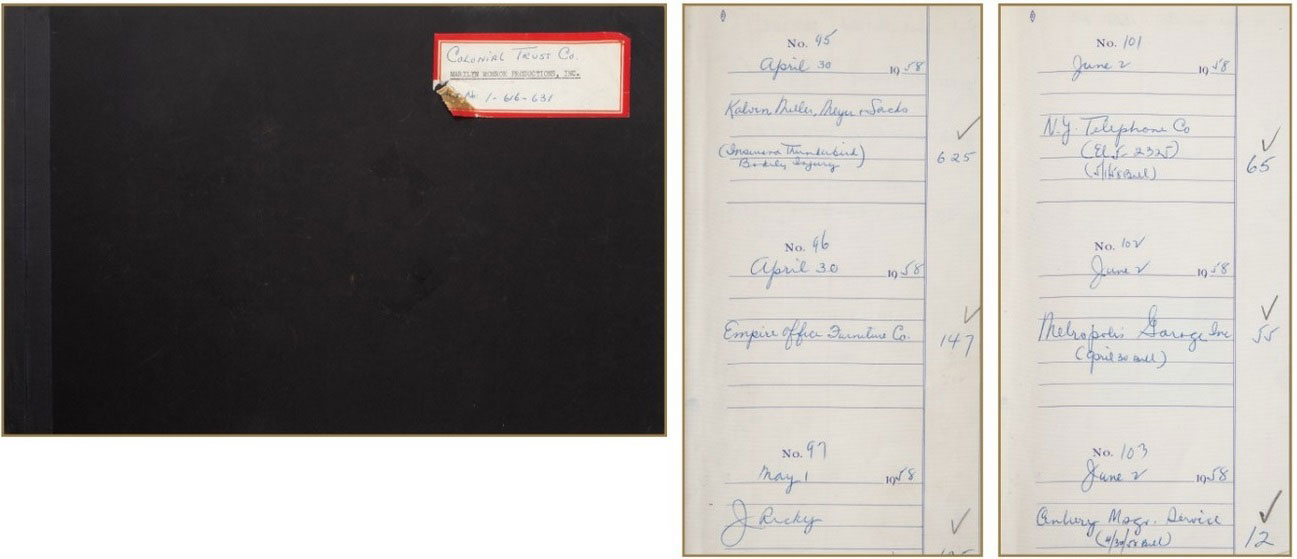 Colonial Trust Co.
MARILYN MONROE PRODUCTIONS, INC.
1-616-631
No. 95
April 30 1958
Kalvin Miller, Meyer & Sacks
(Insurance Thunderbird)
Bodily Injury
625
No. 96
April 30 1958
Empire Office Furniture Co.
147
No. 97
May 1 1958
J Ricky
No. 101
June 2 1958
N.Y. Telephone Co
(El 5-2325)
(5/1/58 Bill)
65
No. 102
June 2 1958
Metropolis Garage Inc
(April 30 Bill)
55
No. 103
June 2 1958
Msgr. Service
(4/30/58 Bill)
12